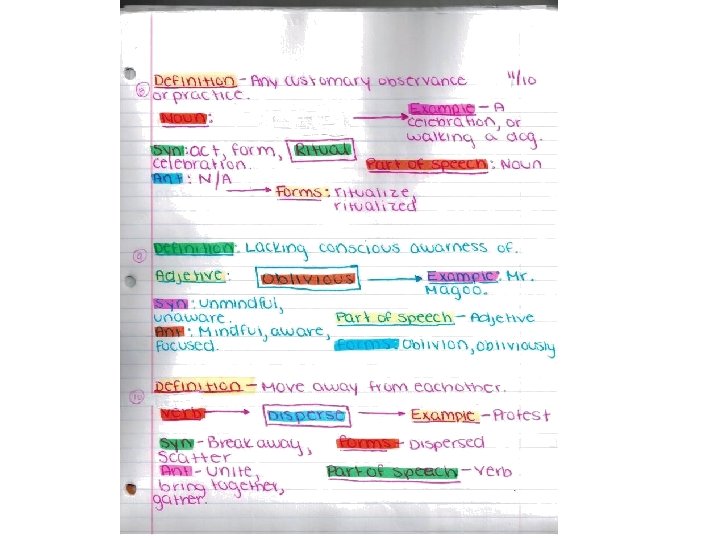 Definition - Any customary observance 4/10
8 or practice.
Noun:
Example - A
celebration, or
walking a dog.
Syn: act, form, Ritual
celebration. Part of speech: Noun
Ant: N/A
Forms: ritualize,
ritualized
9 Definition: Lacking conscious awarness of.
Adjetive: Oblivious Example: Mr.
Magoo.
Syn: unmindful,
unaware. Part of speech - Adjetive
Ant: Mindful, aware,
focused. forms: Oblivion, obliviously
Definition - Move away from eachother.
10
verb Disperse Example - Protest
Syn - Break away, forms - Dispersed
scatter
Ant - Unite, Part of speech - Verb
bring together,
gather.